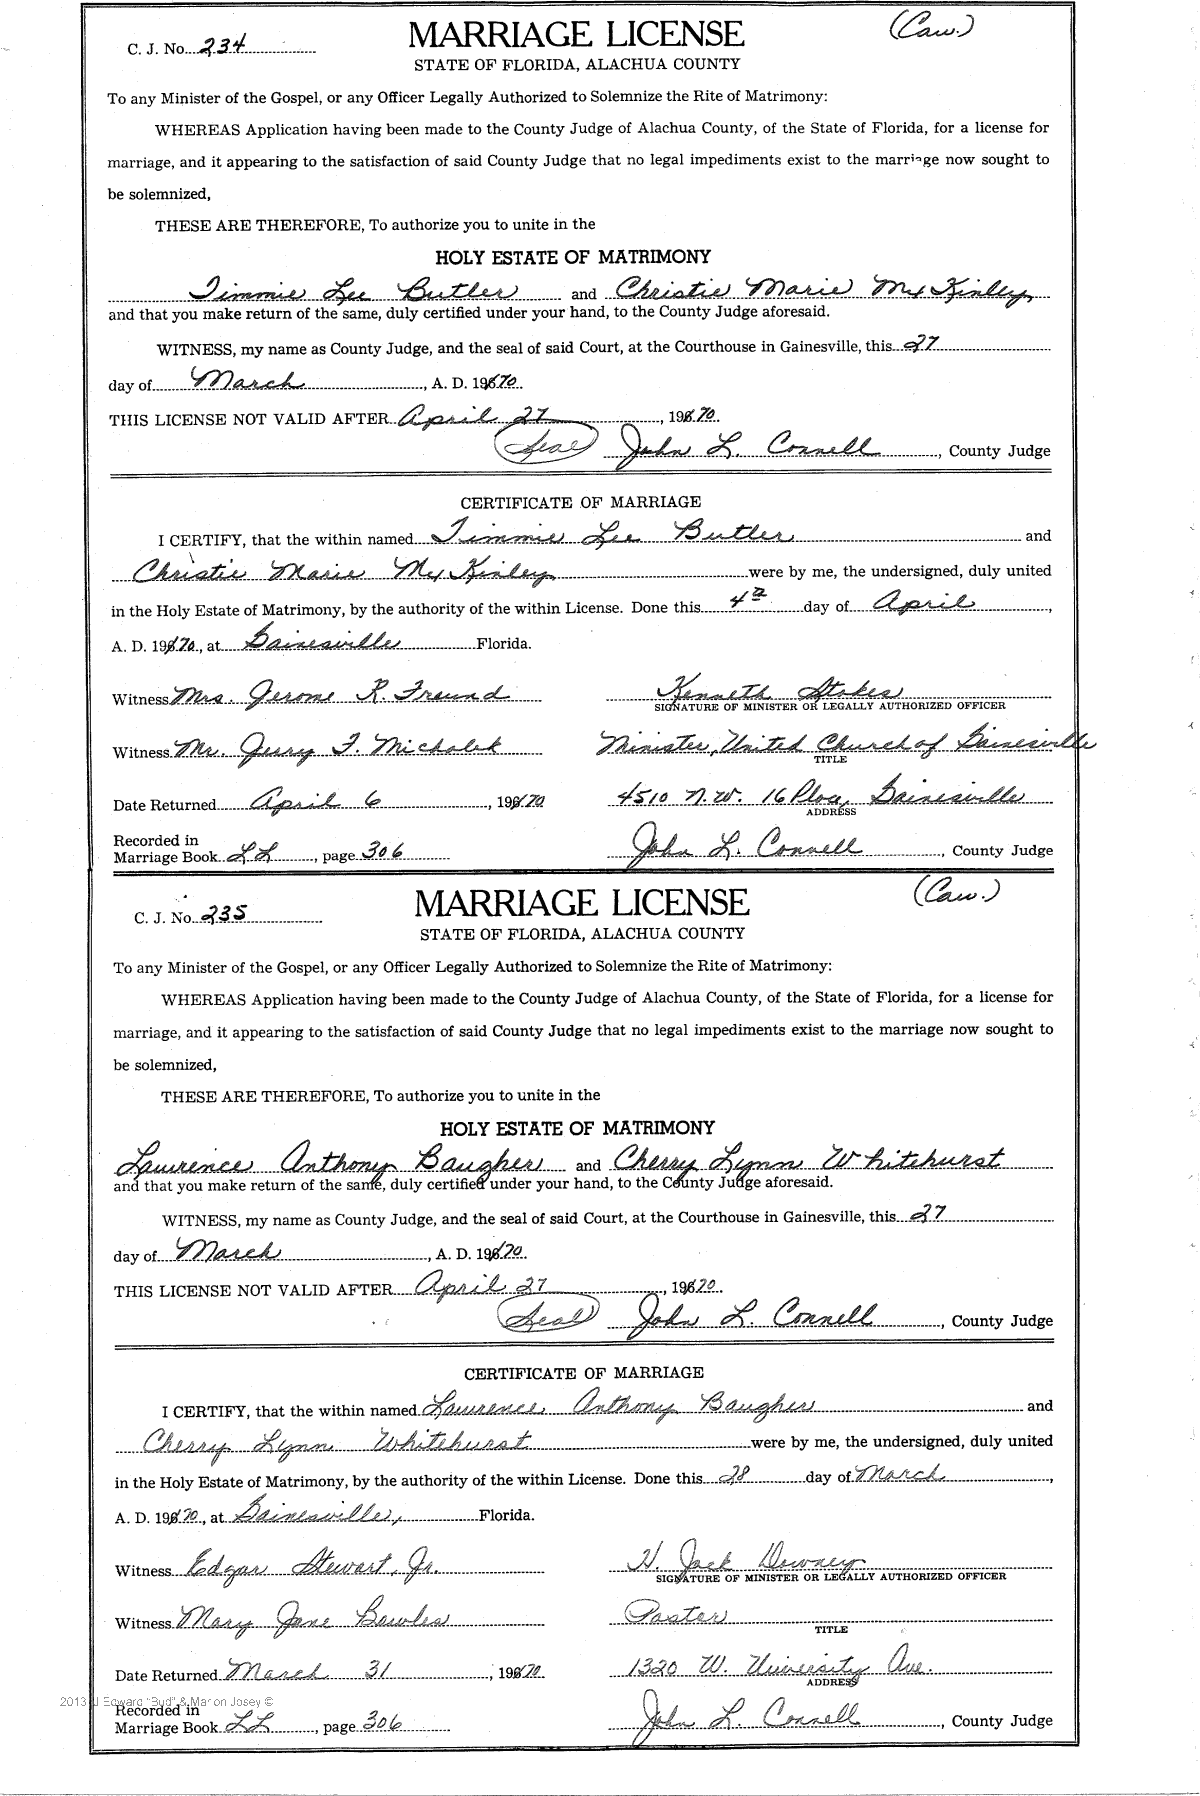 C. J. No. 234 MARRIAGE LICENSE (Cau.)
STATE OF FLORIDA, ALACHUA COUNTY
To any Minister of the Gospel, or any Officer Legally Authorized to Solemnize the Rite of Matrimony:
WHEREAS Application having been made to the County Judge of Alachua County, of the State of Florida, for a license for
marriage, and it appearing to the satisfaction of said County Judge that no legal impediments exist to the marriage now sought to
be solemnized,
THESE ARE THEREFORE, To authorize you to unite in the
HOLY ESTATE OF MATRIMONY
Timmie Lee Butler and Christie Marie McKinley
and that you make return of the same, duly certified under your hand, to the County Judge aforesaid.
WITNESS, my name as County Judge, and the seal of said Court, at the Courthouse in Gainesville, this 27
day of March, A. D. 1970
THIS LICENSE NOT VALID AFTER April 27, 1970
(Seal) John L. Connell, County Judge
CERTIFICATE OF MARRIAGE
I CERTIFY, that the within named Timmie Lee Butler and
Christie Marie McKinley were by me, the undersigned, duly united
in the Holy Estate of Matrimony, by the authority of the within License. Done this 4th day of April,
A. D. 1970, at Gainesville Florida.
Witness Mrs. Jerome R. Freund Kenneth Stokes
SIGNATURE OF MINISTER OR LEGALLY AUTHORIZED OFFICER
Witness Mr. Jerry F. Michalek Minister, United Church of Gainesville
TITLE
Date Returned April 6, 1970 4510 N.W. 16 Place, Gainesville
ADDRESS
Recorded in
Marriage Book LL, page 306 John L. Connell, County Judge
C. J. No. 235 MARRIAGE LICENSE (Cau.)
STATE OF FLORIDA, ALACHUA COUNTY
To any Minister of the Gospel, or any Officer Legally Authorized to Solemnize the Rite of Matrimony:
WHEREAS Application having been made to the County Judge of Alachua County, of the State of Florida, for a license for
marriage, and it appearing to the satisfaction of said County Judge that no legal impediments exist to the marriage now sought to
be solemnized,
THESE ARE THEREFORE, To authorize you to unite in the
HOLY ESTATE OF MATRIMONY
Lawrence Anthony Baugher and Cherry Lynn Whitehurst
and that you make return of the same, duly certified under your hand, to the County Judge aforesaid.
WITNESS, my name as County Judge, and the seal of said Court, at the Courthouse in Gainesville, this 27
day of March, A. D. 1970
THIS LICENSE NOT VALID AFTER April 27, 1970
(Seal) John L. Connell, County Judge
CERTIFICATE OF MARRIAGE
I CERTIFY, that the within named Lawrence Anthony Baugher and
Cherry Lynn Whitehurst were by me, the undersigned, duly united
in the Holy Estate of Matrimony, by the authority of the within License. Done this 28 day of March,
A. D. 1970, at Gainesville, Florida.
Witness Edgar Stewart, Jr. H. Jack Downey
SIGNATURE OF MINISTER OR LEGALLY AUTHORIZED OFFICER
Witness Mary Jane Bowles Pastor
TITLE
Date Returned March 31, 1970 1320 W. University Ave.
ADDRESS
2013 J Edward "Bud" & Marion Josey ©
Recorded in
Marriage Book LL, page 306 John L. Connell, County Judge